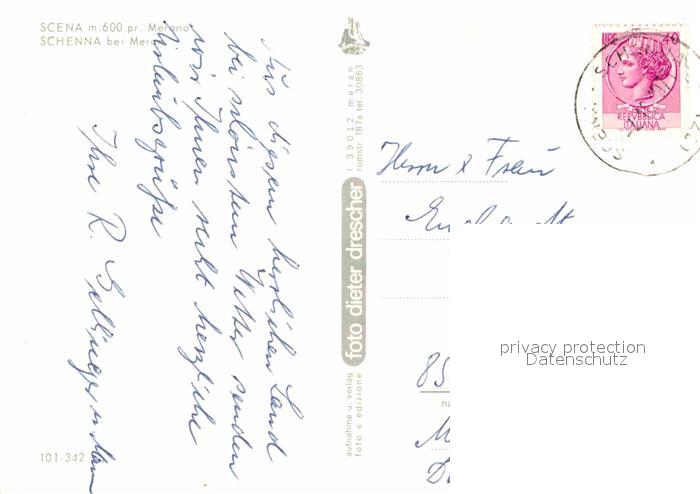 SCENA m.600 pr. Merano
SCHENNA bei Meran
Aus diesem herrlichen Land
bei schönstem Wetter senden
wir Ihnen recht herzliche
Urlaubsgrüße
Ihre R.
101-342
aufnahme u. verlag
foto e edizione
foto dieter drescher
I 39012 meran
romstr. 187a tel. 30863
LIRE 40
REPVBBLICA
ITALIANA
SCHENNA
SCENA
Herrn & Frau
85
M
D
privacy protection
Datenschutz